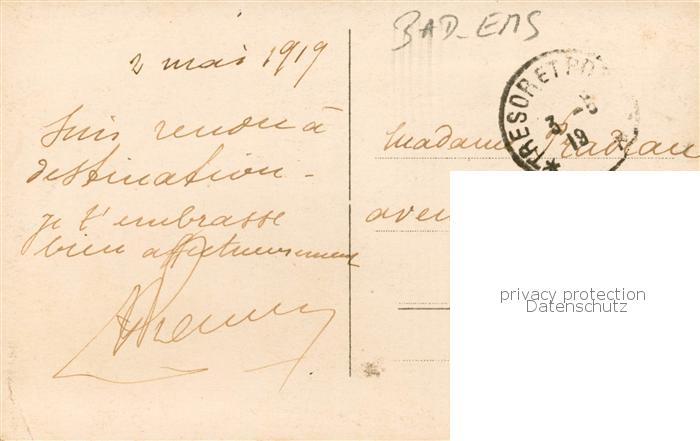 BAD-EMS
2 mai 1919
TRESOR ET PO
3 -5
19
Suis rendu à
destination -
je t'embrasse
bien affectueusement
Madame Pradeau
aven
privacy protection
Datenschutz